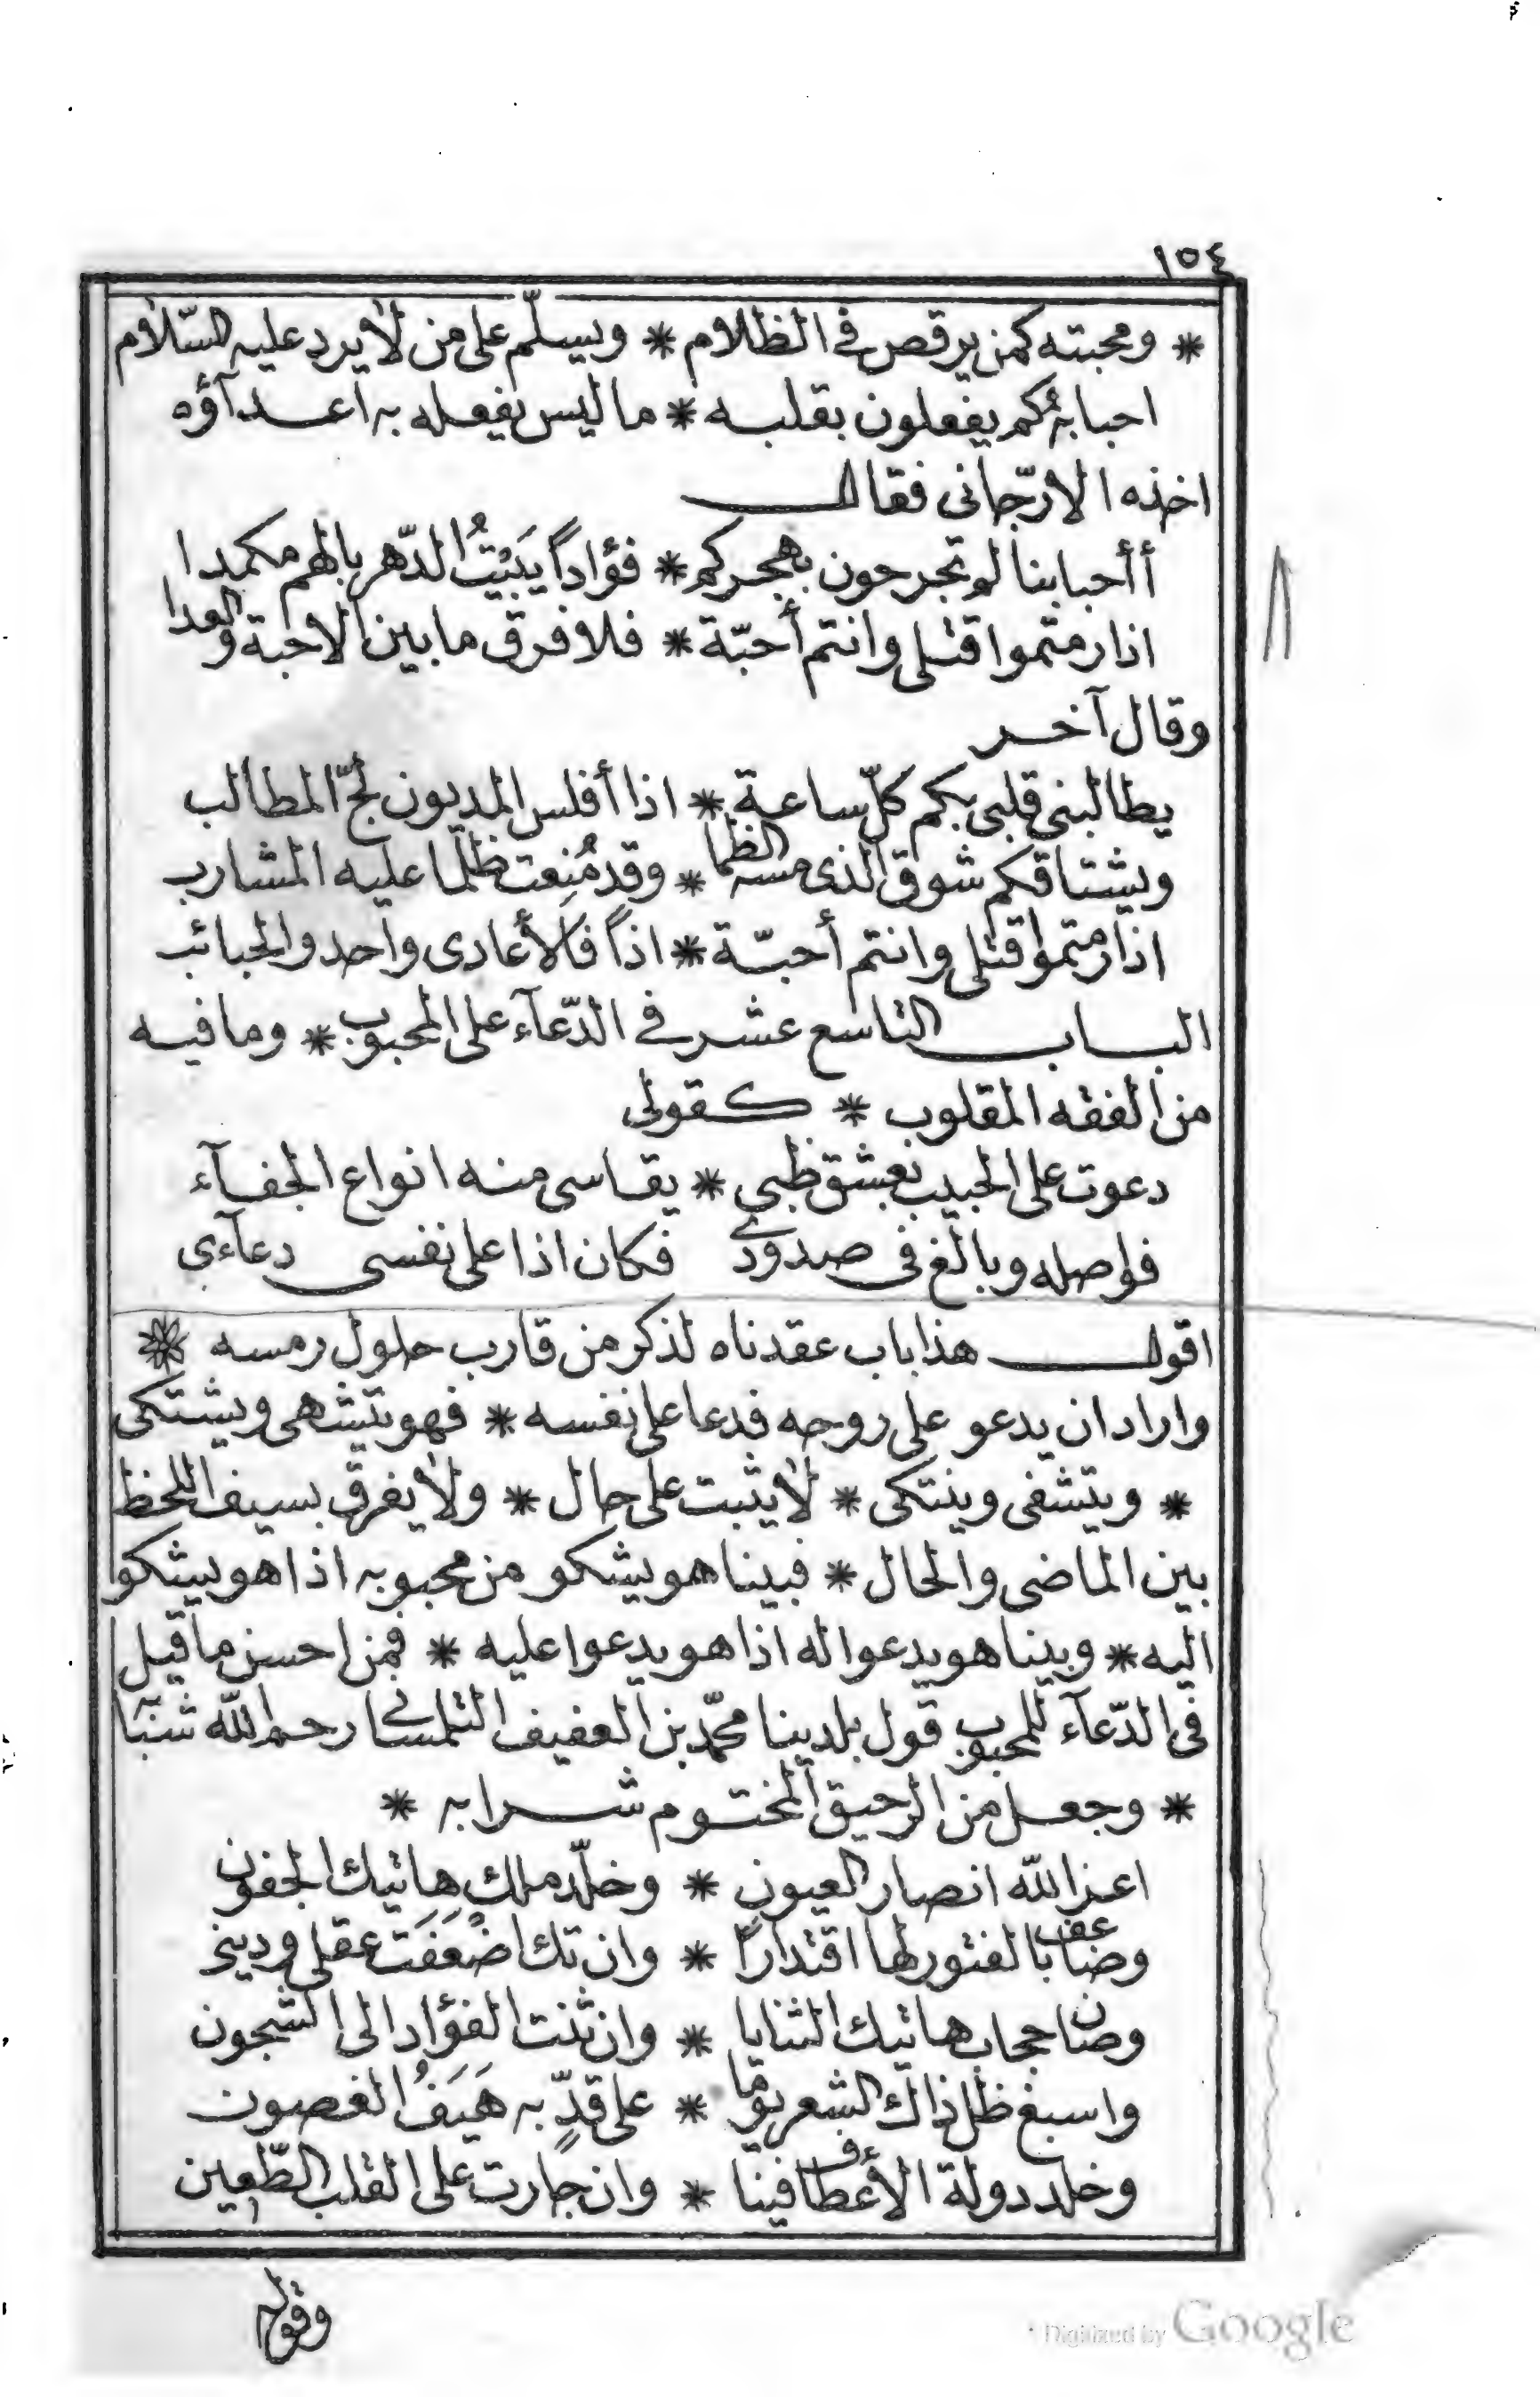 ١٥٤
* ومحبته كمن يرقص فى الظلام * ويسلّم على من لا يرد عليه السّلام
احبابه كم يفعلون بقلبه * ما ليس يفعله به اعدآؤه
اخذه الارّجانى فقال
أأحبابنا لو تجرحون بهجركم * فؤاداً يَبيْتُ الدّهر بالهم مكمدا
اذا رمتموا قتلى وانتم أحبّة * فلا فرق ما بين الاحبة والعدا
وقال آخر
يطالبنى قلبى بكم كلّ ساعة * اذا أفلس المديون لجّ المطالب
ويشتاقكم شوق الذى مسه الظما * وقد مُنِعت ظلما عليه المشارب
اذا رمتموا قتلى وانتم أحبّة * اذاً فالأعادى واحد والحبائب
الباب التاسع عشر فى الدّعآء على المحبوب * وما فيه
من الفقه المقلوب * كقولى
دعوت على الحبيب بعشق ظبى * يقاسى منه انواع الجفآء
فواصله وبالغ فى صدودى فكان اذا على نفسى دعآءى
اقول هذا باب عقدناه لذكر من قارب حلول رمسه *
واراد ان يدعو على روحه فدعا على نفسه * فهو يتشهى ويشتكى
* ويتشفى وينتكى * لا يثبت على حال * ولا يفرق بسيف اللحظ
بين الماضى والحال * فبينا هو يشكو من محبوبه اذا هو يشكوا
اليه * وبينا هو يدعوا له اذا هو يدعوا عليه * فمن احسن ما قيل
فى الدّعآء للمحبوب قول بلدينا محمّد بن العفيف التلمسانى رحم الله شبابه
* وجعل من الرحيق المختوم شرابه *
اعز الله انصار العيون * وخلّد ملك هاتيك الجفون
وضاعف بالفتور لها اقتداراً * وان تك اضعَفَت عقلى ودينى
وصان حجاب هاتيك الثنايا * وان ثنت الفؤاد الى الشجون
واسبغ ظل ذاك الشعر يوما * على قدٍّ به هَيَفُ الغصون
وخلد دولة الأعطاف فينا * وان جارت على القلب الطّعين
وقوله
Digitized by Google